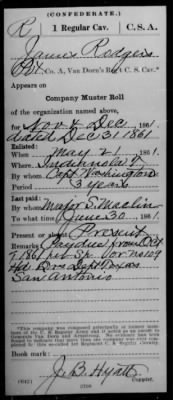 (CONFEDERATE.)
R 1 Regular Cav. C.S.A.
James Rodgers
Pvt, Co. A, Van Dorn's Reg't C. S. Cav.*
Appears on
Company Muster Roll
of the organization named above,
for Nov & Dec, 1861.
dated Dec 31 1861
Enlisted:
When May 21, 1861.
Where Indianola
By whom Capt. Washington
Period 3 years
Last paid:
By whom Major S. Maclin
To what time June 30, 1861.
Present or absent Present
Remarks: Pay due from Oct
1861 No 109
Hd Qrs Dept Texas
San Antonio
*This company was composed principally of former members of the
Book mark:
J. B. Hyatt
(642) Copyist.